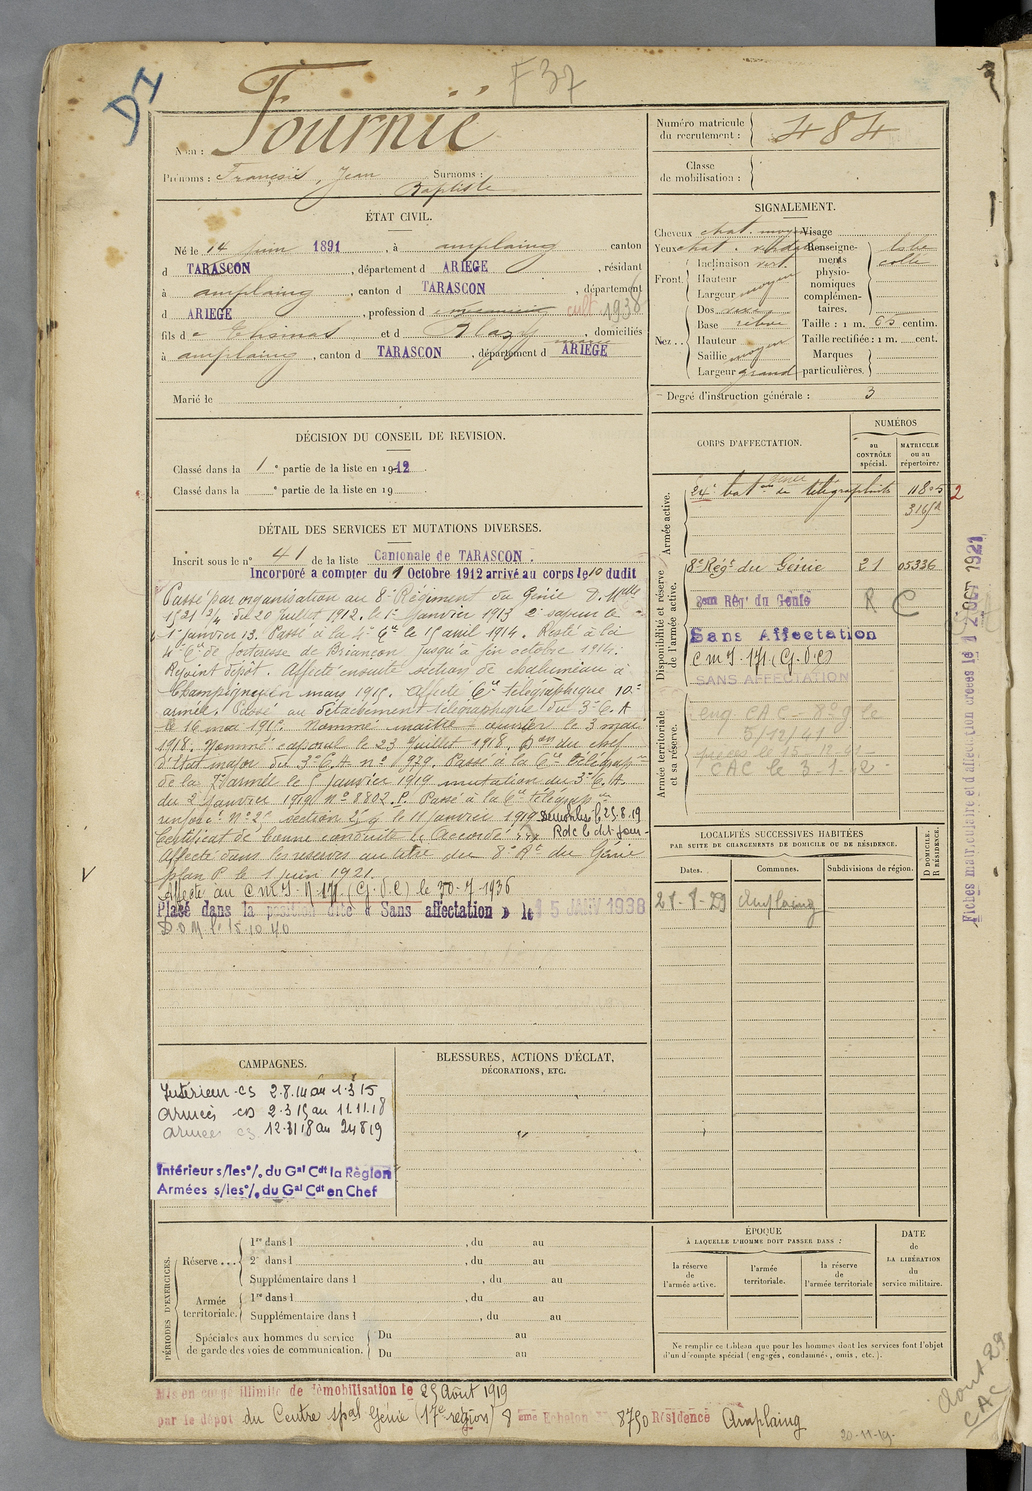 D I
F 37
Nom : Fournié
Prénoms : François, Jean Surnoms :
Baptiste
Numéro matricule
du recrutement : 484
Classe
de mobilisation :
ÉTAT CIVIL.
Né le 14 Juin 1891, à amplaing canton
d TARASCON, département d ARIEGE, résidant
à amplaing, canton d TARASCON, département
d ARIEGE, profession d cult 1938
fils de Thomas et d Blazy, domiciliés
à amplaing, canton d TARASCON, département d ARIEGE
Marié le
SIGNALEMENT.
Cheveux chat. moyen
Yeux chat.
Front. Inclinaison vert.
Hauteur
Largeur moyen
Nez.. Dos
Base
Hauteur
Saillie moyen
Largeur grand
Visage
Renseigne-
ments
physio-
nomiques
complémen-
taires. lobe
collé
Taille : 1 m. 65 centim.
Taille rectifiée : 1 m. cent.
Marques
particulières.
Degré d'instruction générale : 3
DÉCISION DU CONSEIL DE REVISION.
Classé dans la 1e partie de la liste en 1912.
Classé dans la e partie de la liste en 19
CORPS D'AFFECTATION.
NUMÉROS
au
CONTRÔLE
spécial.
MATRICULE
ou au
répertoire.
Armée active.
24e bat on du génie télégraphiste 11805 2
Disponibilité et réserve
de l'armée active.
8e Régt du Génie 21 05336
8eme Régt du Génie R C
Sans Affectation
C m I. 171 (G.V.C)
SANS AFFECTATION
Armée territoriale
et sa réserve.
CAC
5/12/41
CAC le 3-1-42
DÉTAIL DES SERVICES ET MUTATIONS DIVERSES.
Inscrit sous le n° 41 de la liste Cantonale de TARASCON.
Incorporé a compter du 1 Octobre 1912 arrivé au corps le 10 dudit
Passé par organisation au 8e Régiment du Génie D. Mlle
1521 3/4 du 20 Juillet 1912. le 1er Janvier 1913 2e sapeur le
1er Janvier 13. Passé à la 4e Cie le 15 avril 1914. Resté à la
4e Cie de forteresse de Briançon jusqu'à fin octobre 1914.
Rejoint dépôt. Affecté ensuite section de chalumeau à
Champigneul en mars 1915. Affecté Cie télégraphique 10e
armée. Passé au détachement télégraphique du 3e C. A
le 16 mai 1915. Nommé maître ouvrier le 3 mai
1918. Nommé caporal le 23 Juillet 1918. Don du chef
d'état major du 3e C. A. n° 1929. Passé à la Cie télégraphique
de la armée le 5 Janvier 1919 mutation du 3e C. A.
du 2 Janvier 1919 N° 8802. P. Passé à la Cie télégraph
N° 2 section le 11 Janvier 1919. Démobilisé le 25.8.19
Certificat de bonne conduite "Accordé" Rdc le dit jour
Affecté dans les reserves au titre du 8e Rt du Génie
plan P. le 1 Juin 1921.
Affecté au C M I N 171 (G.V.C) le 30-7-1936
Placé dans la position dite « Sans affectation » le 15 JANV 1938
D O M le 15 10 40
LOCALITÉS SUCCESSIVES HABITÉES
PAR SUITE DE CHANGEMENTS DE DOMICILE OU DE RÉSIDENCE.
Dates.
Communes.
Subdivisions du région.
D DOMICILE.
R RÉSIDENCE.
28-8-29 Amplaing
Fiches matriculaire et d'affectation créées le 12 OCT 1921
CAMPAGNES.
Intérieur cs 2.8.14 au 1.3 15
Armées cd 2.3 15 au 11.11.18
Armées cs 12.11 18 au 24 8 19
Intérieur s/les% du Gal Cdt la Région
Armées s/les% du Gal Cdt en Chef
BLESSURES, ACTIONS D'ÉCLAT,
DÉCORATIONS, ETC.
"
PÉRIODES D'EXERCICES.
Réserve.... 1re dans l , du au
2e dans l , du au
Supplémentaire dans l , du au
Armée
territoriale. 1re dans l , du au
Supplémentaire dans l , du au
Spéciales aux hommes du service
de garde des voies de communication. Du au
Du au
ÉPOQUE
À LAQUELLE L'HOMME DOIT PASSER DANS :
la réserve
de
l'armée active.
l'armée
territoriale.
la réserve
de
l'armée territoriale
DATE
de
LA LIBÉRATION
du
service militaire.
Ne remplir ce tableau que pour les hommes dont les services font l'objet
d'un décompte spécial (engagés, condamnés, omis, etc.).
Mis en congé illimité de démobilisation le 25 Août 1919
par le dépôt du Centre spal Génie (17e région) 8 ème Echelon N° 8750 Résidence Amplaing
20-11-19.
Aout 29
CAC